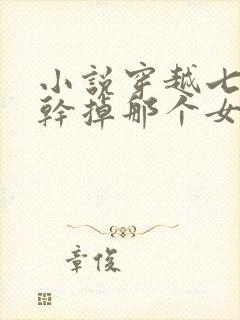 小说穿越七
幹掉那个女
章俊